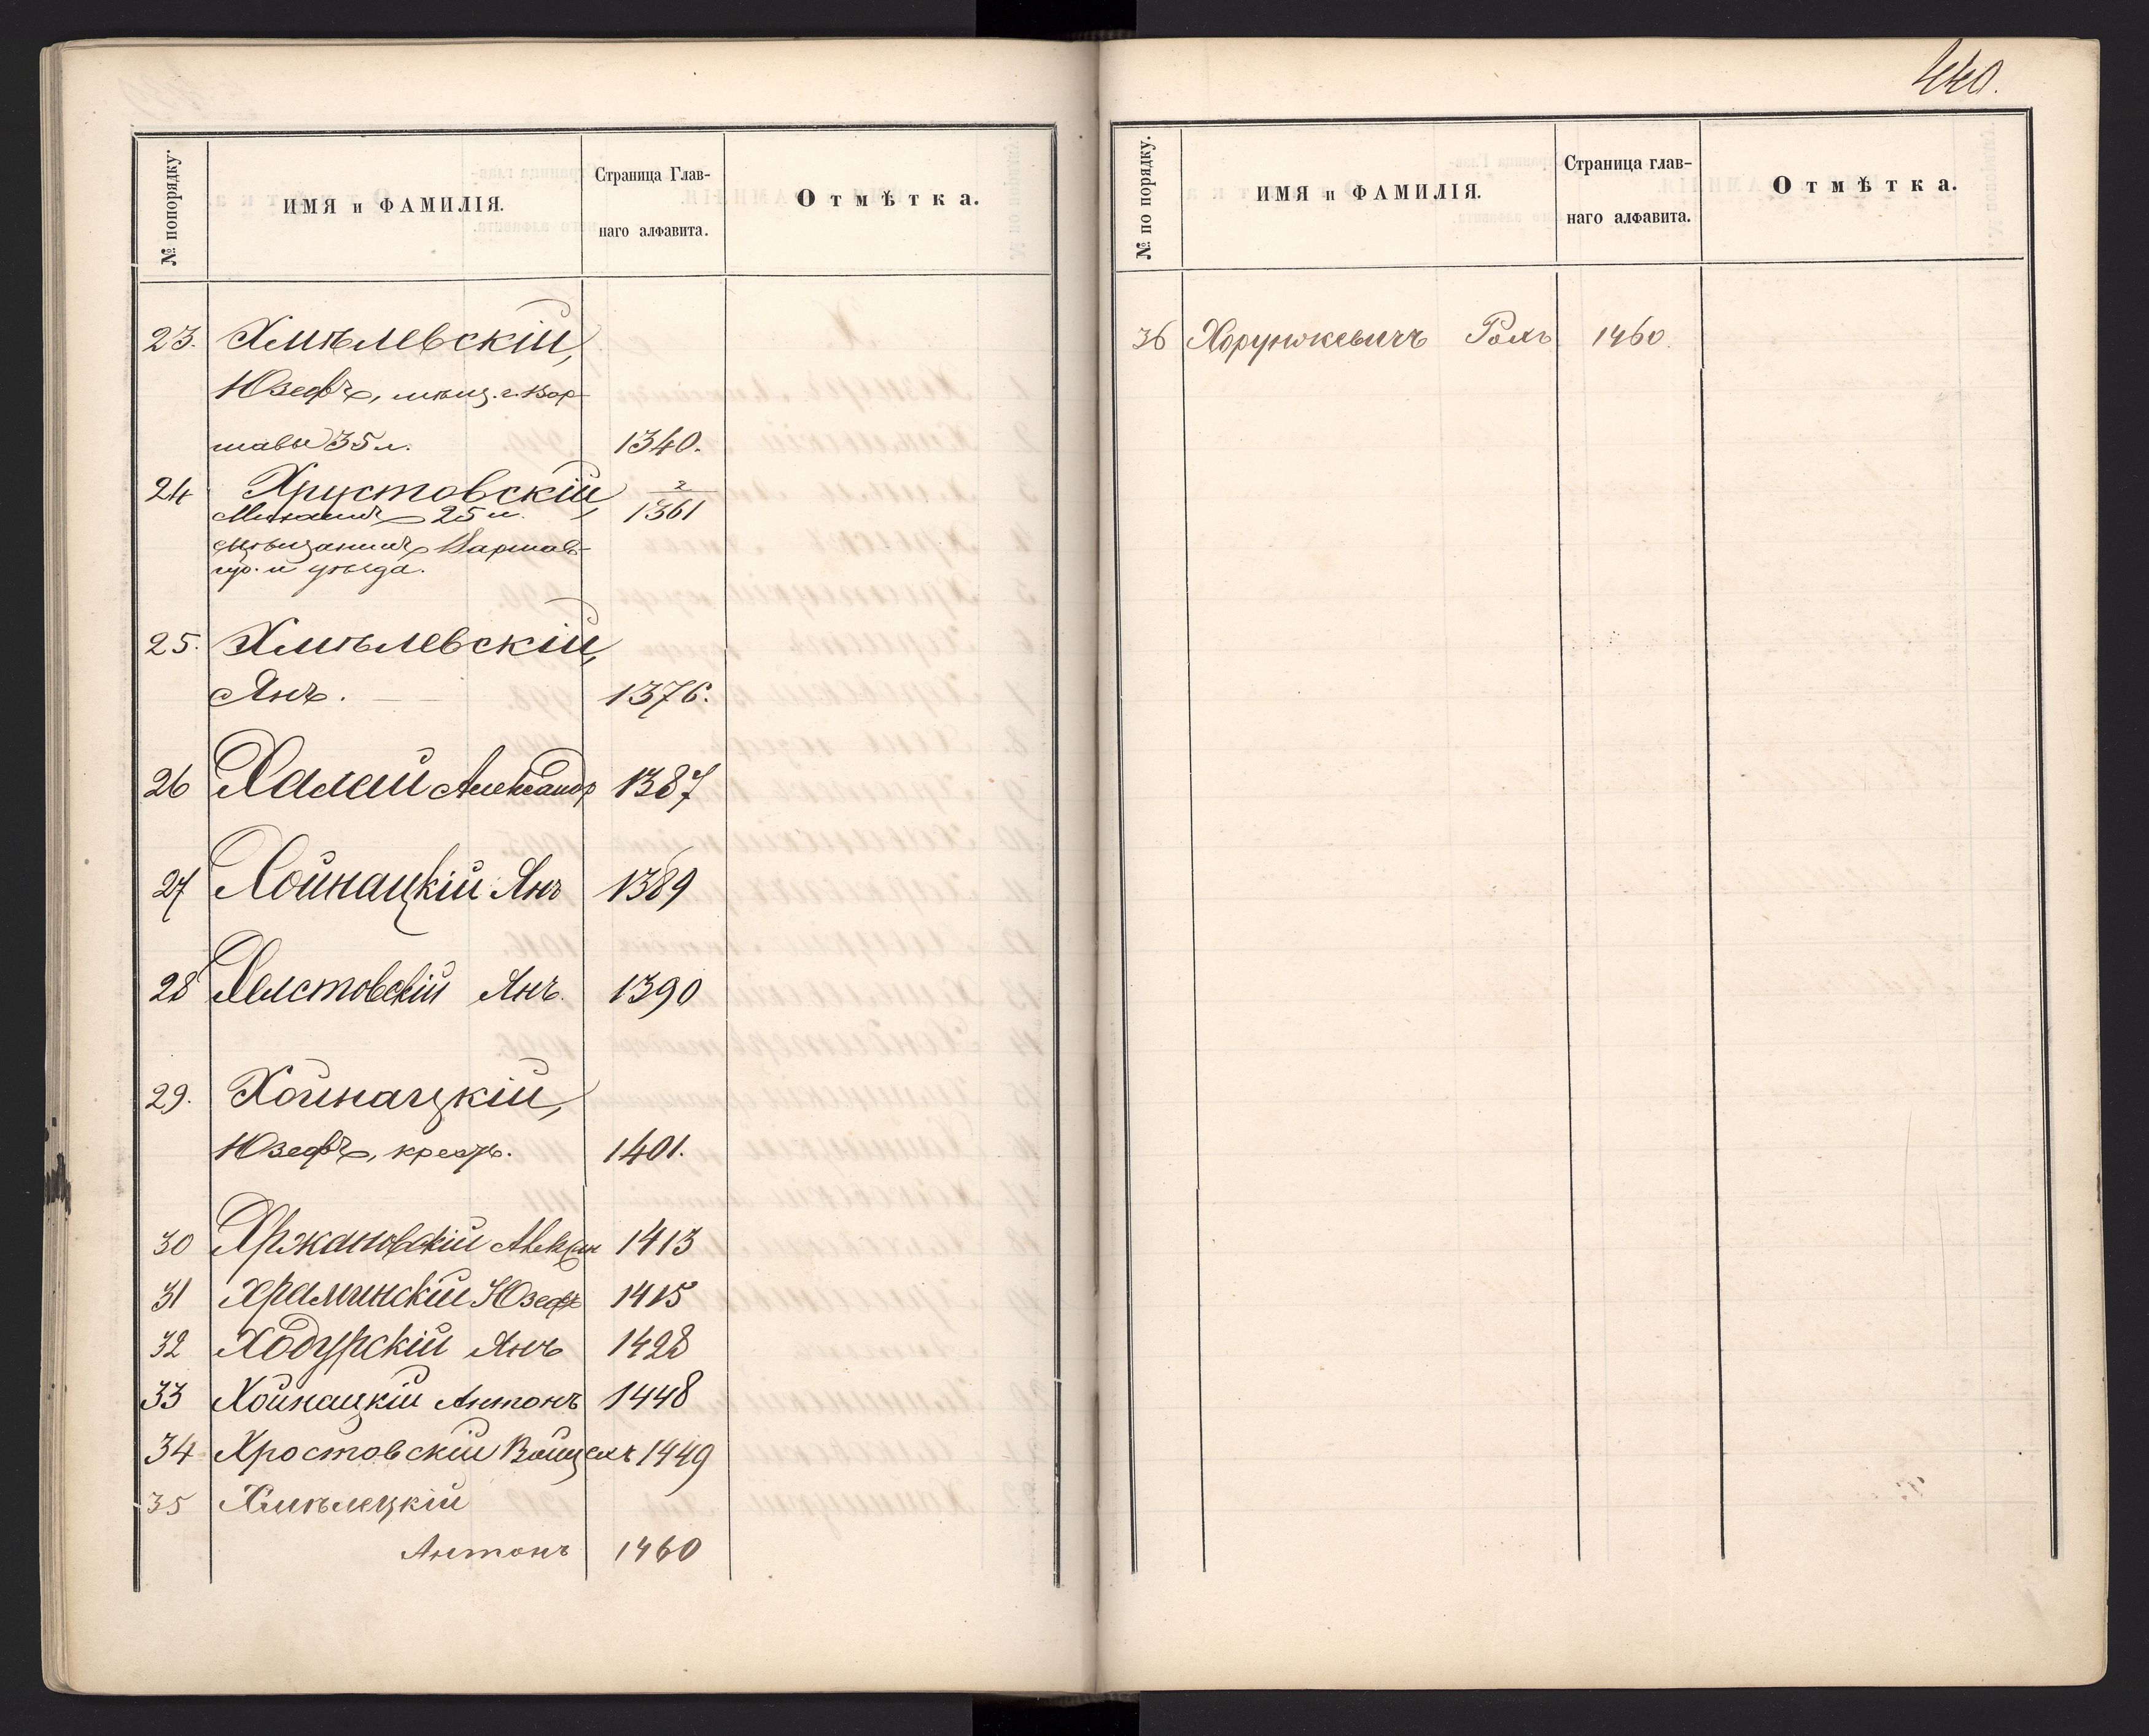 № попорядку.
ИМЯ и ФАМИЛІЯ.
Страница Глав-
наго алфавита.
Отмѣтка.
23. Хмѣлевскій,
Юзефъ, мѣщ. г. Вар-
шавы 35 л. 1340.
24 Хрустовскій, 2
25 л. 1361
Мѣщанинъ Варшав.
гур. и уѣзда.
25. Хмѣлевскій,
Янъ. 1376.
26 Халай Александр 1387
27 Хойнацкій Янъ 1389
28 Хелстовскій Янъ. 1390
29. Хойнацкій,
Юзефъ, крест. 1401.
30 Хржановскій 1413
31 Храминскій Юзефъ 1415
32 Ходурскій Янъ 1428
33 Хойнацкій Антонъ 1448
34 Хростовскій Войцехъ 1449
35 Хмѣлецкій
Антонъ 1460
440.
№ по порядку.
ИМЯ и ФАМИЛІЯ.
Страница глав-
наго алфавита.
Отмѣтка.
36 Хорунжевичъ Рохъ 1460.